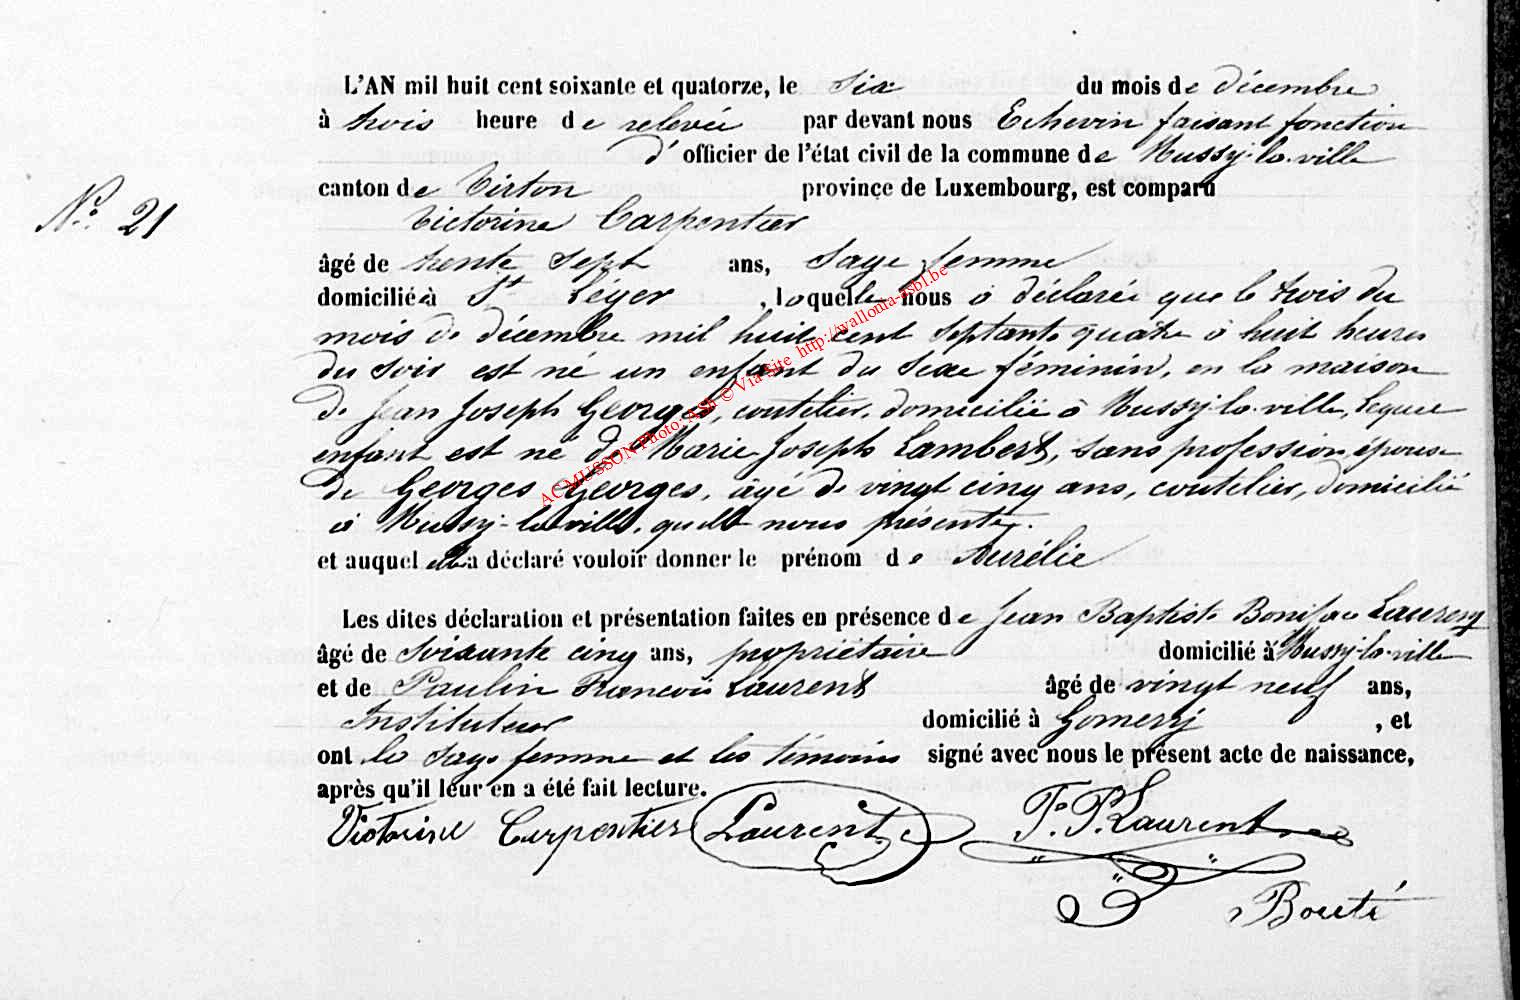 L'AN mil huit cent soixante et quatorze, le six du mois de décembre
à trois heure de relevée par devant nous Echevin faisant fonction
d'officier de l'état civil de la commune de Mussy-la-ville
canton de Virton province de Luxembourg, est comparu
N.° 21
Victorine Carpentier
âgé de trente sept ans, Sage femme
domicilié à St Léger, laquelle nous a déclaré que le trois du
mois de décembre mil huit cent septante quatre à huit heures
du soir est né un enfant du sexe féminin, en la maison
de Jean Joseph Georges, coutelier, domicilié à Mussy-la-ville, lequel
enfant est né de Marie Joseph Lambert, sans profession, épouse
de Georges Georges, âgé de vingt cinq ans, coutelier, domicilié
à Mussy-la-ville, quelle nous présente,
et auquel elle a déclaré vouloir donner le prénom de Aurélie
Les dites déclaration et présentation faites en présence de Jean Baptiste Boniface Laurent
âgé de soixante cinq ans, propriétaire domicilié à Mussy-la-ville
et de Paulin François Laurent âgé de vingt neuf ans,
Instituteur domicilié à Gomery, et
ont la sage femme et les témoins signé avec nous le présent acte de naissance,
après qu'il leur en a été fait lecture.
Victorine Carpentier Laurent F. P. Laurent
Bouté
AC MUSSON Photo: ASB © Via Site http://wallonia-asbl.be